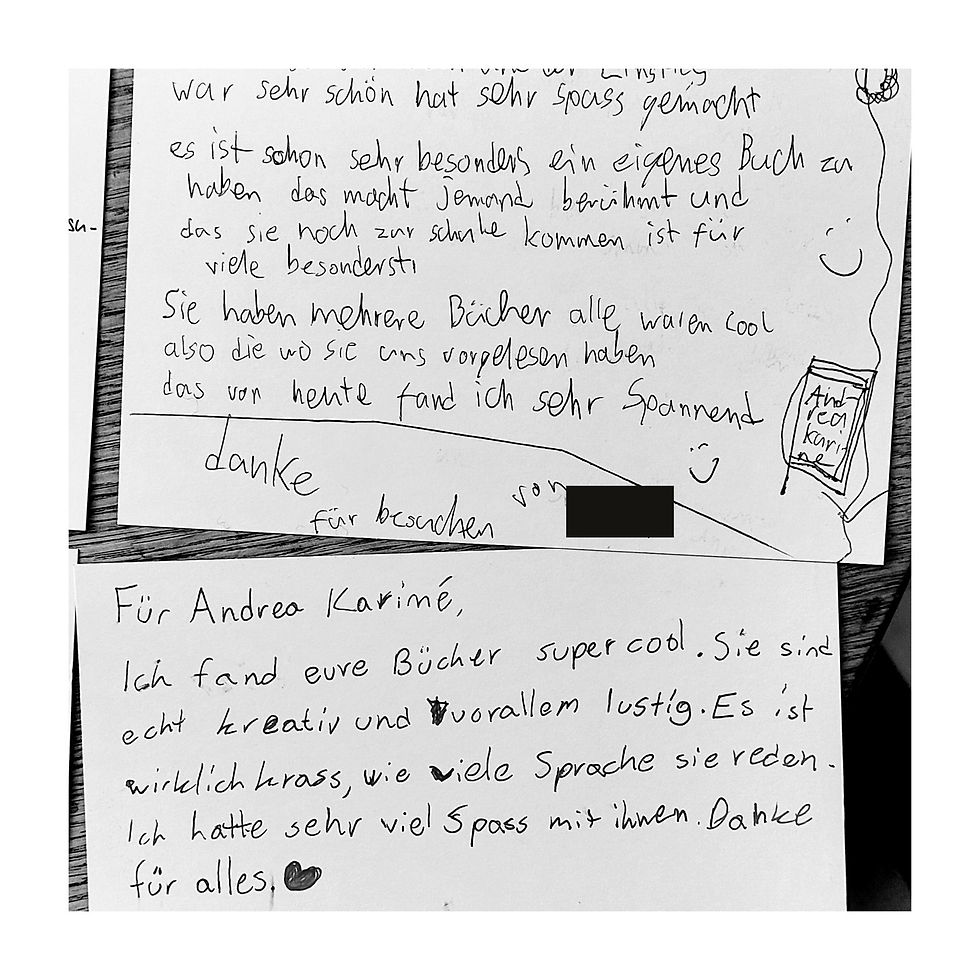 war sehr schön hat sehr spass gemacht
es ist schon sehr besonders ein eigenes Buch zu
haben das macht jemand berühmt und
das sie noch zur schule kommen ist für
viele besonders
Sie haben mehrere Bücher alle waren cool
also die wo sie uns vorgelesen haben
das von heute fand ich sehr Spannend
danke
für besuchen
von
And-
rea
Kari-
ne
Für Andrea Karimé,
Ich fand eure Bücher super cool. Sie sind
echt kreativ und vorallem lustig. Es ist
wirklich krass, wie viele Sprache sie reden.
Ich hatte sehr viel Spass mit ihnen. Danke
für alles.